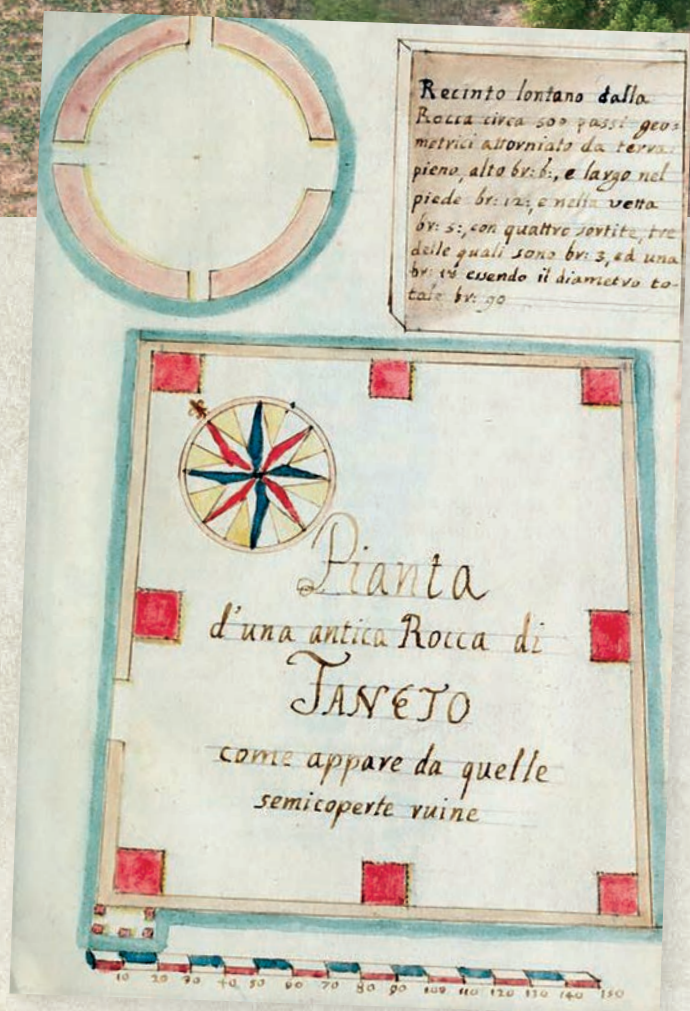 Recinto lontano dalla
Rocca circa 500 passi geo=
metrici attorniato da terra:
pieno, alto br: 6:, e largo nel
piede br: 12:, e nella vetta
br: 5:, con quattro sortite, tre
delle quali sono br: 3, ed una
br: essendo il diametro to-
tale br: 90
Pianta
d'una antica Rocca di
TANETO
come appare da quelle
semicoperte ruine
10 20 30 40 50 60 70 80 90 100 110 120 130 140 150